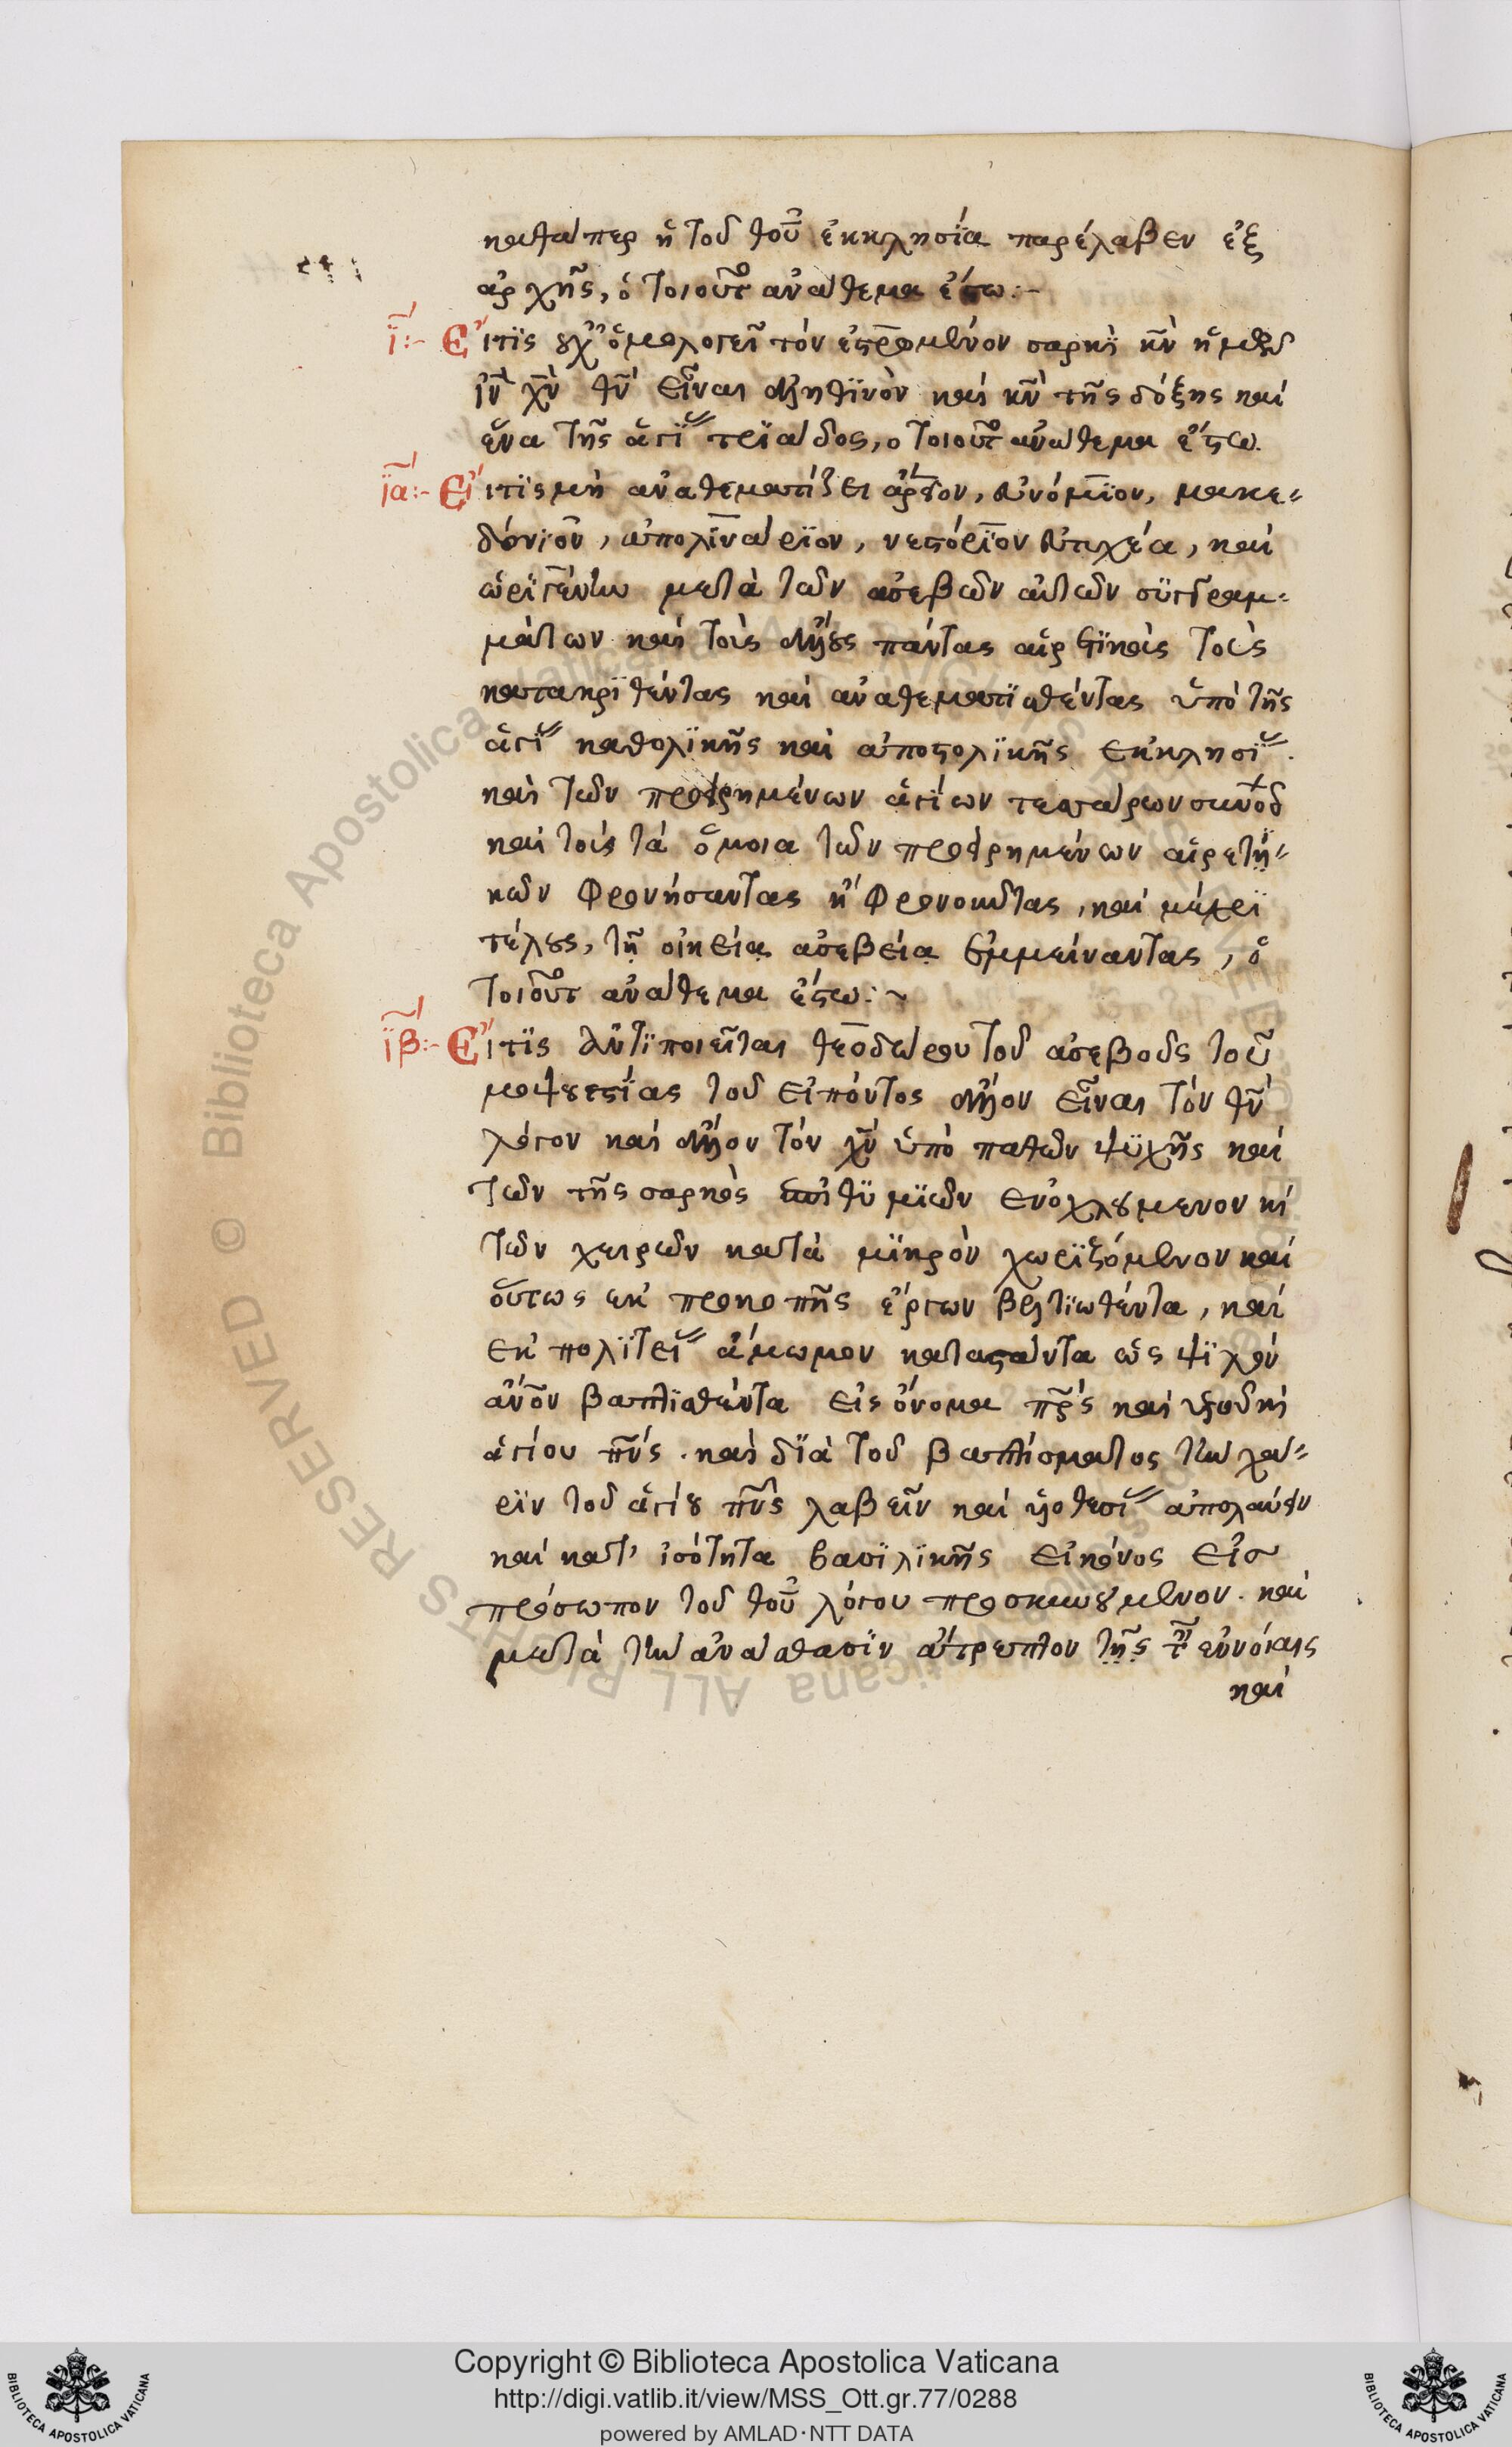 καθάπερ ἡ τοῦ θοῦ ἐκκλησία παρέλαβεν ἐξ
ἀρχῆς, ὁ τοιοῦτο ἀνάθεμα ἔστω:-
ϊ:- Εἴ τϊς οὐχ ὁμολογεῖ τὸν ἐστρωμένον σαρκὶ κν ἡμῶν
ιν χν θν εἶναι ἀληθϊνὸν καὶ κν τῆς δόξης καὶ
ἕνα τῆς ἁγί τρϊάδος, ὁ τοιοῦτο ἀνάθεμα ἔστω.
ϊα:- Εἴ τϊς μὴ ἀναθεματίζει ἄρειον, εὐνόμϊον, μακε=
δόνϊον, ἀπολινάρϊον, νεστόρϊον εὐτυχέα, καὶ
ὠρϊγένην μετὰ τῶν ἀσεβῶν αὐτῶν συγγραμ=
μάτων καὶ τοὺς ἄλλους πάντας αἱρετϊκοὺς τοὺς
κατακρϊθέντας καὶ ἀναθεματϊσθέντας ὑπὸ τῆς
ἁγί καθολϊκῆς καὶ ἀποστολϊκῆς ἐκκλησί.
καὶ τῶν προειρημένων ἁγίων τεσσάρων συνόδ
καὶ τοὺς τὰ ὅμοια τῶν προειρημένων αἱρετη=
κῶν φρονήσαντας ἢ φρονοῦντας, καὶ μέχρϊ
τέλους, τῇ οἰκείᾳ ἀσεβείᾳ ἐμμείναντας, ὁ
τοιοῦτο ἀνάθεμα ἔστω:~
ϊβ:- Εἴ τϊς ἀντϊποιεῖται θεοδώρου τοῦ ἀσεβοῦς τοῦ
μοψουεστίας τοῦ εἰπόντος ἄλλον εἶναι τὸν θν
λόγον καὶ ἄλλον τὸν χν ὑπὸ παθῶν ψϋχῆς καὶ
τῶν τῆς σαρκὸς ἐπιθϋμϊῶν ἐνοχλούμενον κὶ
τῶν χειρῶν κατὰ μϊκρὸν χωρϊζόμενον καὶ
οὕτως ἐκ προκοπῆς ἔργων βελτϊωθέντα, καὶ
ἐκ πολϊτεί ἄμωμον καταστάντα ὡς ψϊλὸν
ἄνον βαπτϊσθέντα εἰς ὄνομα πρς καὶ υἱοῦ κὶ
ἁγίου πνς. καὶ δϊὰ τοῦ βαπτίσματος τὴν χά=
ρϊν τοῦ ἁγίου πνς λαβεῖν καὶ υἱοθεσί ἀπολαύειν
καὶ κατ' ἰσότητα βασϊλϊκῆς εἰκόνος εἰσ
πρόσωπον τοῦ θοῦ λόγου προσκυνούμενον. καὶ
μετὰ τὴν ἀνάστασϊν ἄτρεπτον τῆς τ ἐννοίαις
καὶ
Copyright © Biblioteca Apostolica Vaticana
http://digi.vatlib.it/view/MSS_Ott.gr.77/0288
powered by AMLAD·NTT DATA